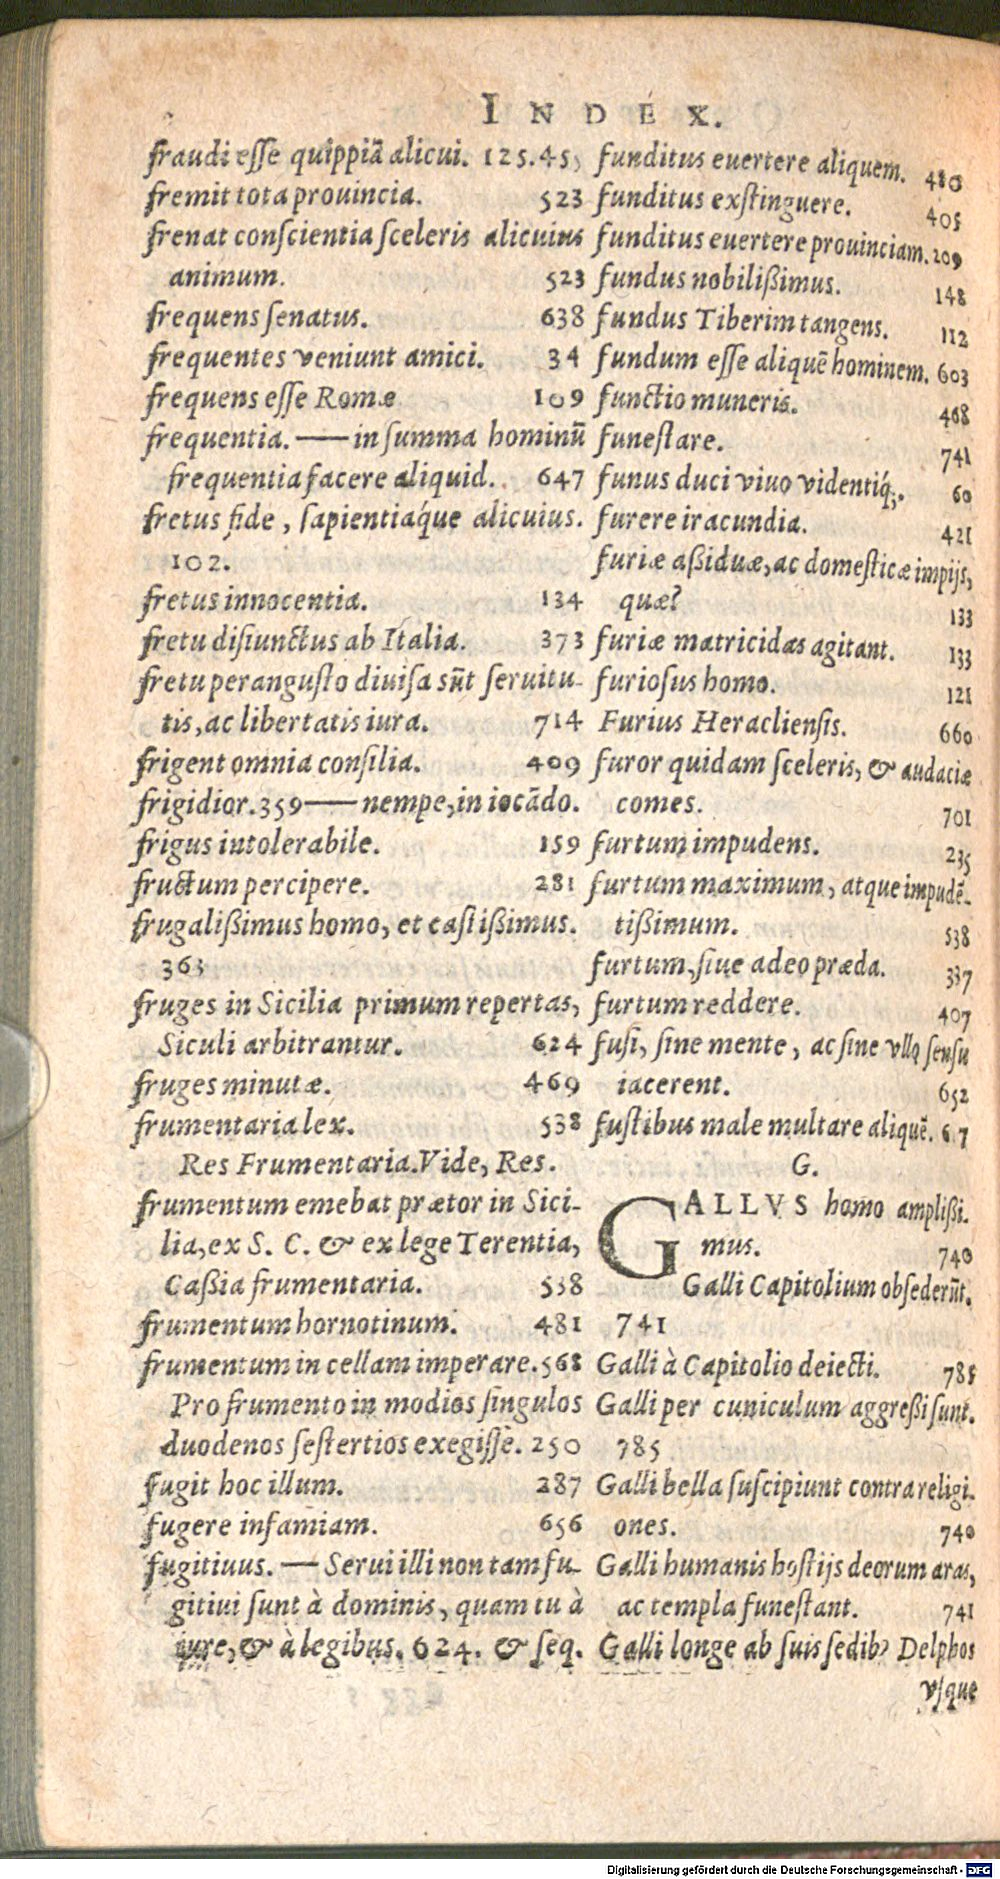 INDEX.
fraudi esse quippiã alicui. 125.45
fremit tota prouincia. 523
frenat conscientia sceleris alicuius
animum. 523
frequens senatus. 638
frequentes veniunt amici. 34
frequens esse Romæ 109
frequentia. — in summa hominũ
frequentia facere aliquid. 647
fretus fide, sapientiaq́ue alicuius.
102.
fretus innocentia. 134
fretu disiunctus ab Italia. 373
fretu perangusto diuisa sũt seruitu-
tis, ac libertatis iura. 714
frigent omnia consilia. 409
frigidior. 359 — nempe, in iocãdo.
frigus intolerabile. 159
fructum percipere. 281
frugalißimus homo, et castißimus.
363
fruges in Sicilia primum repertas,
Siculi arbitrantur. 624
fruges minutæ. 469
frumentaria lex. 538
Res Frumentaria. Vide, Res.
frumentum emebat prætor in Sici-
lia, ex S. C. & ex lege Terentia,
Caßia frumentaria. 538
frumentum hornotinum. 481
frumentum in cellam imperare. 568
Pro frumento in modios singulos
duodenos sestertios exegisse. 250
fugit hoc illum. 287
fugere infamiam. 656
fugitiuus. — Serui illi non tam fu-
gitiui sunt à dominis, quam tu à
iure, & à legibus. 624. & seq.
funditus euertere aliquem. 480
funditus exstinguere. 405
funditus euertere prouinciam. 209
fundus nobilißimus. 148
fundus Tiberim tangens. 112
fundum esse aliquẽ hominem. 603
functio muneris. 468
funestare. 741
funus duci viuo videntiq́;. 60
furere iracundia. 421
furiæ aßiduæ, ac domesticæ impijs,
quæ? 133
furiæ matricidas agitant. 133
furiosus homo. 121
Furius Heracliensis. 660
furor quidam sceleris, & audaciæ
comes. 701
furtum impudens. 235
furtum maximum, atque impudẽ-
tißimum. 538
furtum, siue adeo præda. 337
furtum reddere. 407
fusi, sine mente, ac sine vllo sensu
iacerent. 652
fustibus male multare aliquẽ. 617
G.
GALLVS homo amplißi-
mus. 740
Galli Capitolium obsederũt.
741
Galli à Capitolio deiecti. 785
Galli per cuniculum aggreßi sunt.
785
Galli bella suscipiunt contra religi-
ones. 740
Galli humanis hostijs deorum aras,
ac templa funestant. 741
Galli longe ab suis sedibꝰ Delphos
vsque
Digitalisierung gefördert durch die Deutsche Forschungsgemeinschaft - DFG